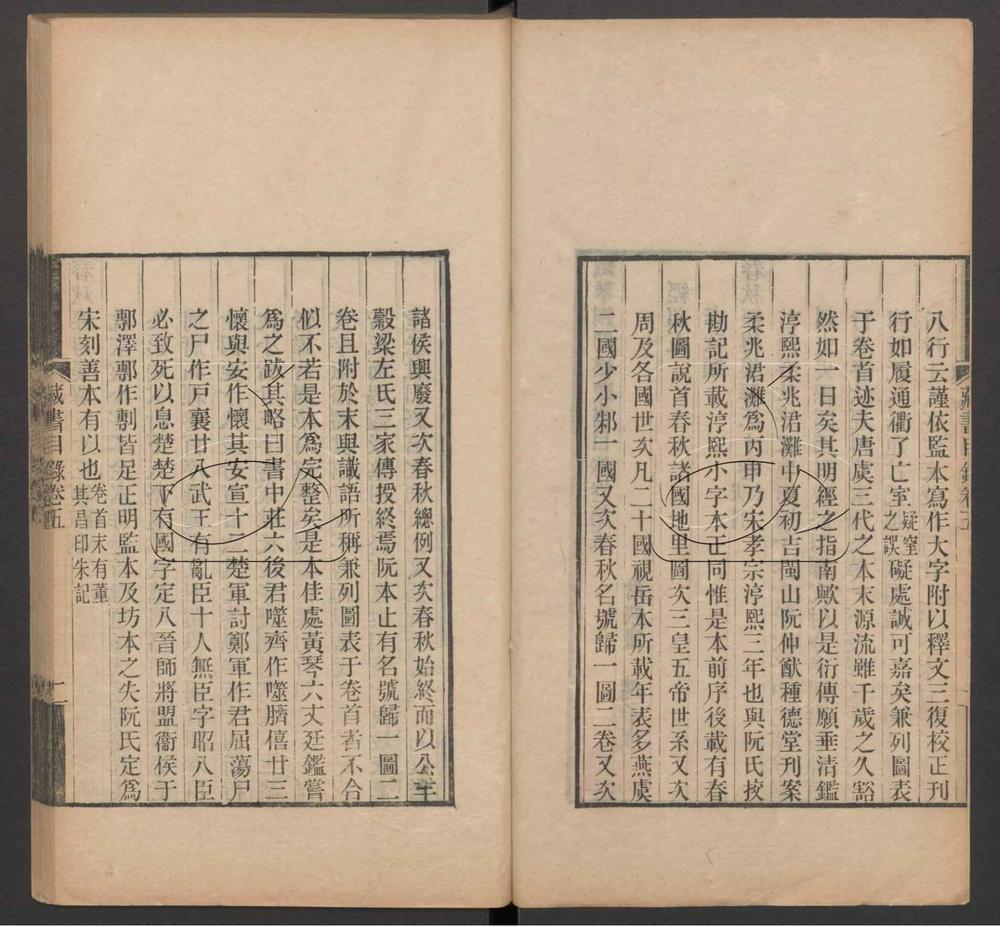 八行云謹依監本寫作大字附以釋文三復校正刊
行如履通衢了亡室疑窒之誤礙處誠可嘉矣兼列圖表
于卷首迹夫唐虞三代之本末源流雖千歲之久豁
然如一日矣其明經之指南歟以是衍傳願垂清鑑
淳熙柔兆涒灘中夏初吉閩山阮仲猷種德堂刊案
柔兆涒灘爲丙申乃宋孝宗淳熙三年也與阮氏挍
勘記所載淳熙小字本正同惟是本前序後載有春
秋圖說首春秋諸國地里圖次三皇五帝世系又次
周及各國世次凡二十國視岳本所載年表多燕虞
二國少小邾一國又次春秋名號歸一圖二卷又次
諸侯興廢又次春秋總例又次春秋始終而以公羊
穀梁左氏三家傳授終焉阮本止有名號歸一圖二
卷且附於末與識語所稱兼列圖表于卷首者不合
似不若是本爲完整矣是本佳處黃琴六丈廷鑑嘗
爲之跋其略曰書中莊六後君噬齊作噬臍僖廿三
懷與安作懷其安宣十二楚軍討鄭軍作君屈蕩尸
之尸作戸襄廿八武王有亂臣十人無臣字昭八臣
必致死以息楚楚下有國字定八晉師將盟衞侯于
鄟澤鄟作剸皆足正明監本及坊本之失阮氏定爲
宋刻善本有以也卷首末有董其昌印朱記
藏書目錄卷五
二